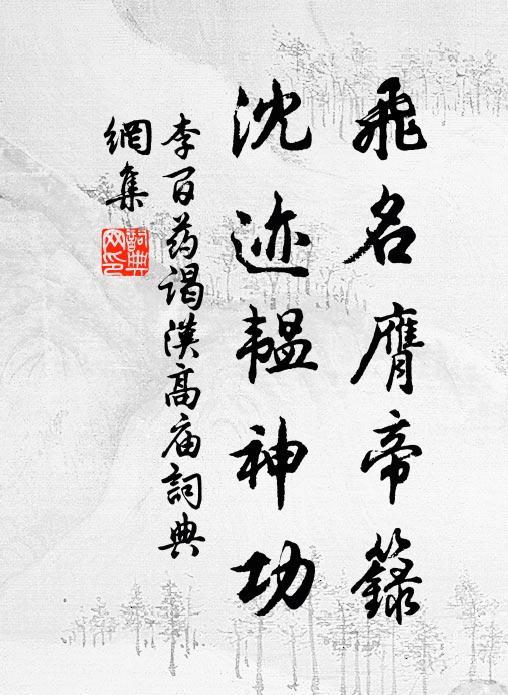 飛名膺帝籙
沈迹韞神功
李百药谒漢高庙詞典
網集
詞典網印